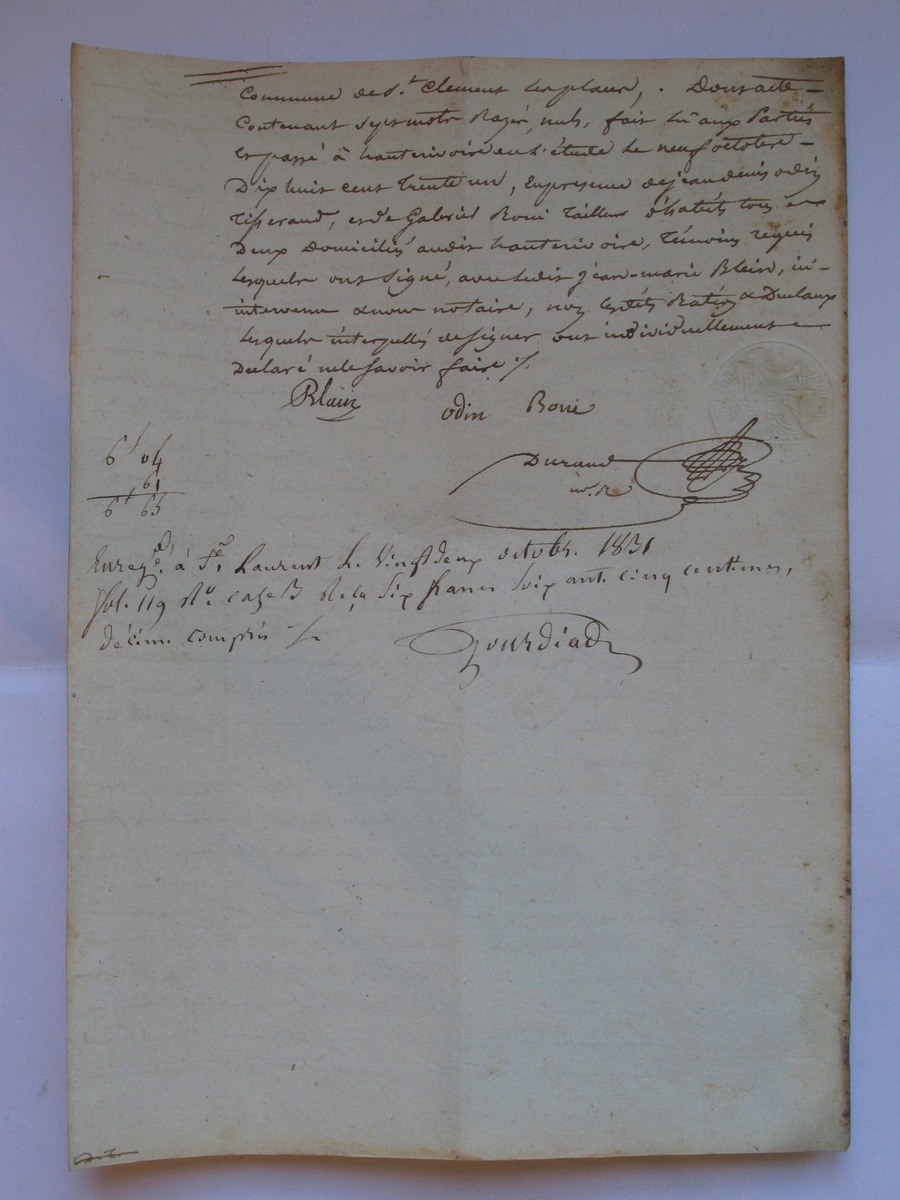 Commune de St. Clement les places, . Dont acte –
Contenant sept mots Razés, nuls, fait lu aux Parties
et passé à hauterivoire en l'étude le neuf octobre –
Dix huit cent trente un, en presence de jean denis odin
Tisserand, et de Gabriel Boni Tailleur d'habits tous
Deux Domiciliés audit hauterivoire, témoins requis
Lesquels ont signé, avec ledit jean-marie Blein, in-
intervenu & nous notaire, non lesdits &
Lesquels interpellés de signer ont individuellement
Declaré ne le savoir faire ./.
Blain odin Boni
Durand
nore
6 f 04
61
6 f 65
Enregé. à St. Laurent le vingt deux octobr. 1831
fol. 119 Ro. case 3 Reçu six francs soixante cinq centimes,
décime compris
Gourdiad